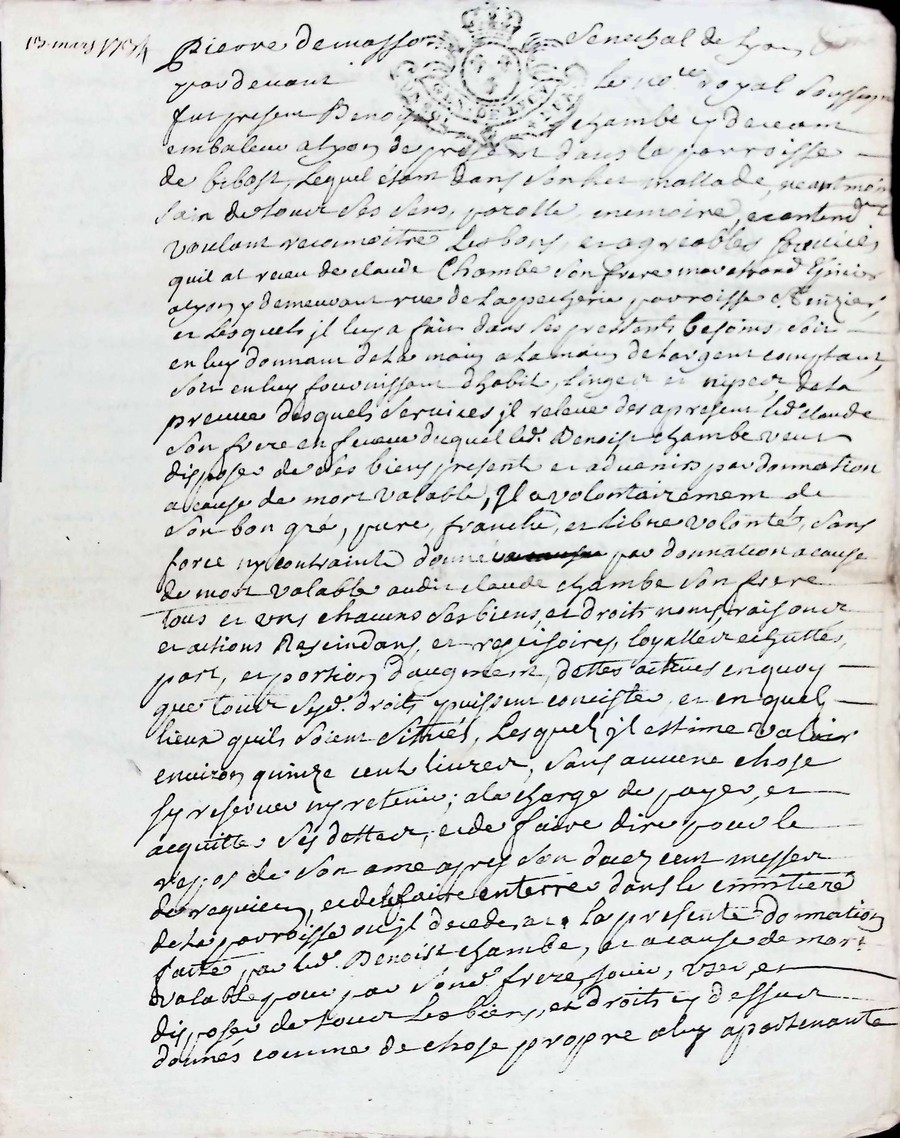 13 mars 1704
Pierre de masso Senechal de Lyon
par devant le no.re royal Soussigné
fut present Benoist chambe cy devant
embaleur a Lyon de present dans la parroisse
de bibost, Lequel etant dans son lict mallade, neantmoins
sain de tous ses sens, parolle, memoire, et entend.t
voulant reconnoitre Les bons, et agreables services
quil at receu de claude Chambe son frere marchand
a Lyon y demeurant rue de La pecherie parroisse
et Lesquels jl luy a fait dans ses pressents besoins, soit
en luy donnant de La main a La main de Largent comptant,
soit en luy fournissant d'habit, Linges et nipes, de La
preuve desquels services jl releve des apresent led. claude
son frere en faveur duquel led. Benoist chambe veut
disposer de ses biens present et advenirs par donnation
a cause de mort valable, Jl a volontairement de
son bon gré, pure, franche, et libre volonté, sans
force ny contrainte donné par donnation a cause
de mort valable audit claude chambe son frere
tous et uns chacuns ses biens, et droits noms, raisons
et actions Rescindans, et rescisoires, loyaltes echuttes,
part, et portion d'augment, dettes actives en quoy
que tous sesd. droits puissent conciste, et en quel
lieux quils soient situés, Lesquels jl estime valoir
environ quinze cent livres, sans aucune chose
sy reserver ny retenir; a la charge de payer, et
acquitter ses dettes, et de faire dire pour le
repos de son ame apres son deces cent messes
de requiem, et de le faire enterré dans le cimitiere
de La parroisse ou jl decedera, La presente donnation
faitte par led. Benoist chambe, et a cause de mort
valable pour par sond. frere jouir, user, et
disposer de tous Les biens, et droits cy dessus
donnés comme de chose propre a luy apartenante